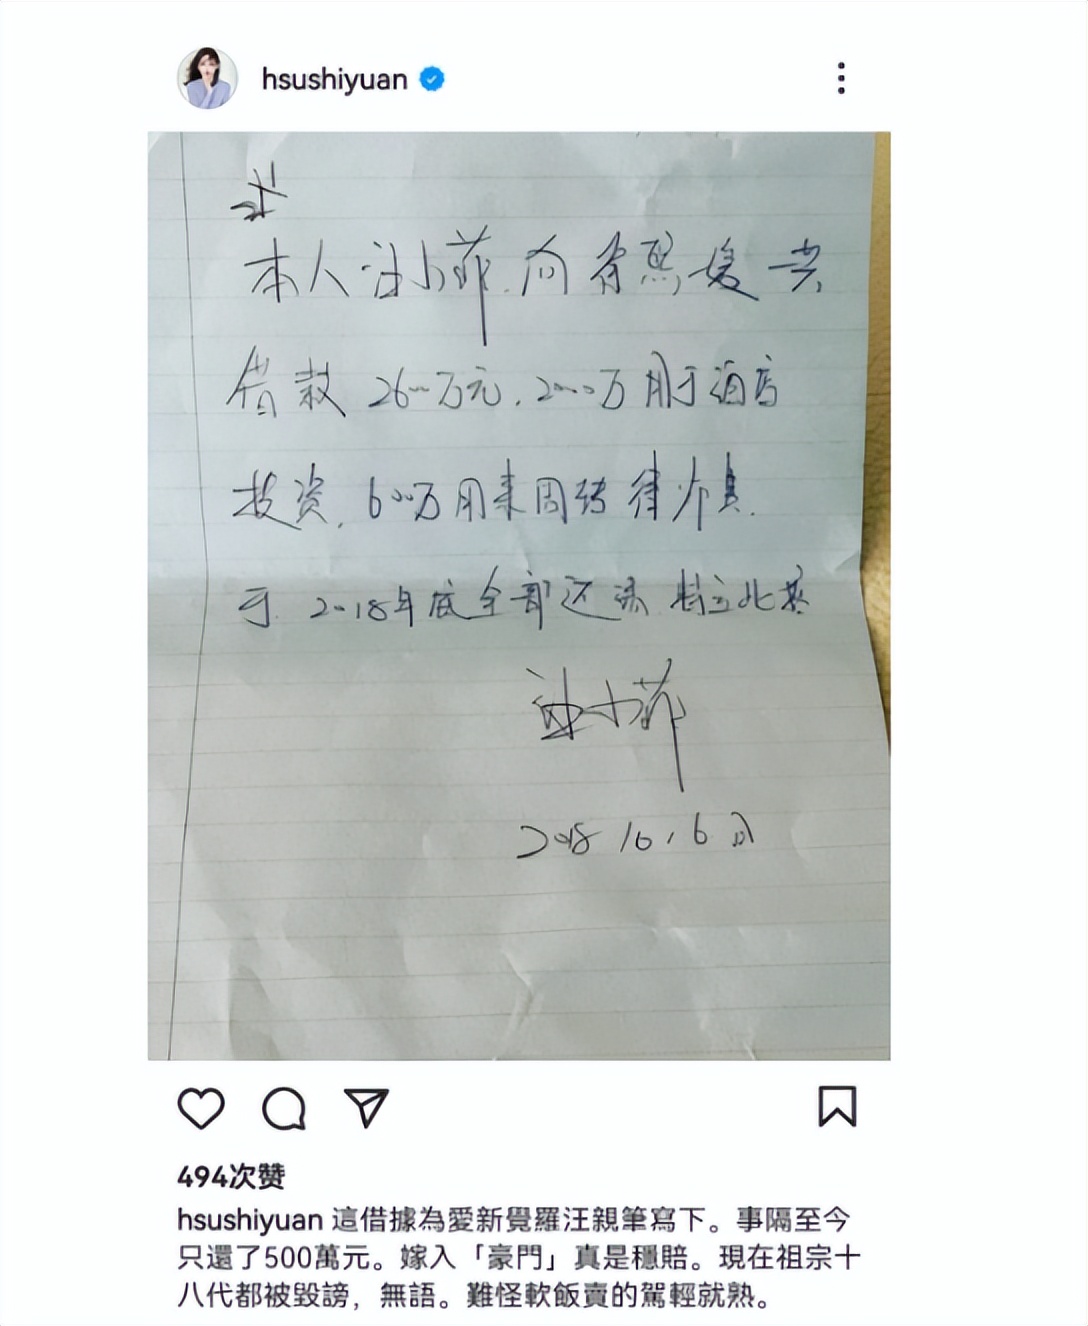 hsushiyuan
本人汪小菲.向徐熙媛共
借款2600万元,2000万用于酒店
投资,600万用来周转
2018年底全部还清 特立此
汪小菲
2018 10.16日
494次赞
hsushiyuan 這借據為愛新覺羅汪親筆寫下。事隔至今
只還了500萬元。嫁入「豪門」真是穩賠。現在祖宗十
八代都被毀謗，無語。難怪軟飯賣的駕輕就熟。